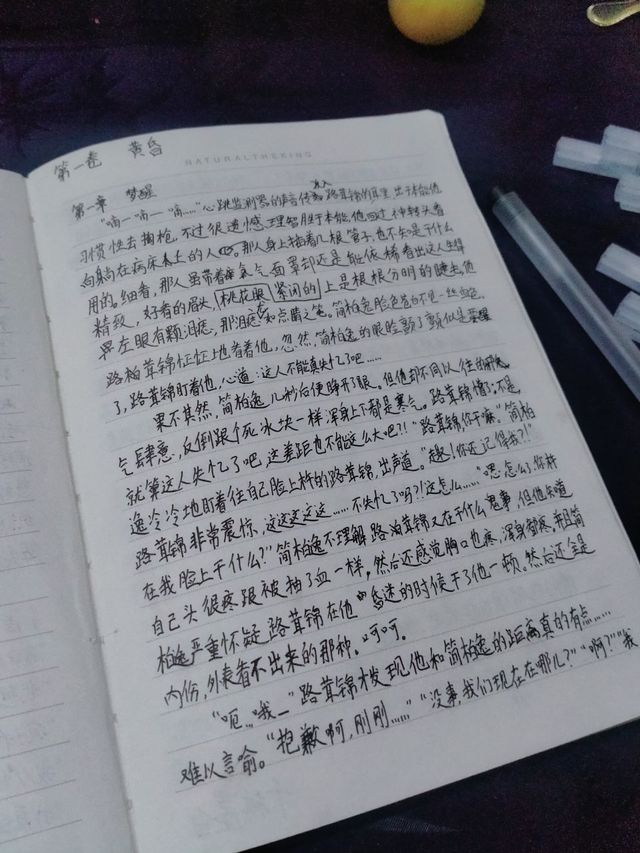 第一卷 黄昏
NATURALTHEKING
第一章 梦醒
“嘀—嘀—嘀……”心跳监测器的声音传入路茸锦的耳里,出于本能他
习惯性去掏枪,不过很遗憾,理智胜于本能,他回过神转头看
向躺在病床上的人。那人身上插着几根管子,也不知是干什么
用的。细看,那人虽带着氧气面罩却还是能依稀看出这人生得
精致,好看的眉头,桃花眼紧闭的上是根根分明的睫毛,他
左眼有颗泪痣,那泪痣如点睛之笔。简柏逸脸色苍白不见一丝血色,
路柏茸锦怔怔地看着他,忽然,简柏逸的眼睑颤了颤似是要醒
了,路茸锦盯着他,心道:这人不能真失忆了吧……
果不其然,简柏逸几秒后便睁开了眼,但他却不同以往的
气肆意,反倒跟个死冰块一样浑身上下都是寒气。路茸锦懵了,不是,
就算这人失忆了吧,这差距也不能这么大吧?!“路茸锦,你干嘛。”简柏
逸冷冷地盯着往自己脸上杵的路茸锦,出声道。“趣!你还记得我?!”
路茸锦非常震惊,这这这这这……不失忆了吗?!这怎么……“嗯,怎么了,你杵
在我脸上干什么?”简柏逸不理解路茸锦又在干什么鬼事,但他知道
自己头很疼跟被抽了血一样,然后还感觉胸口也疼,浑身都疼,并且简
柏逸严重怀疑路茸锦在他昏迷的时候干了他一顿。然后还会是
内伤,外表看不出来的那种。呵呵。
“呃…哦—”路茸锦才发现他和简柏逸的距离真的有点……
难以言喻。“抱歉啊,刚刚……”“没事,我们现在在哪儿?”“啊?”“我